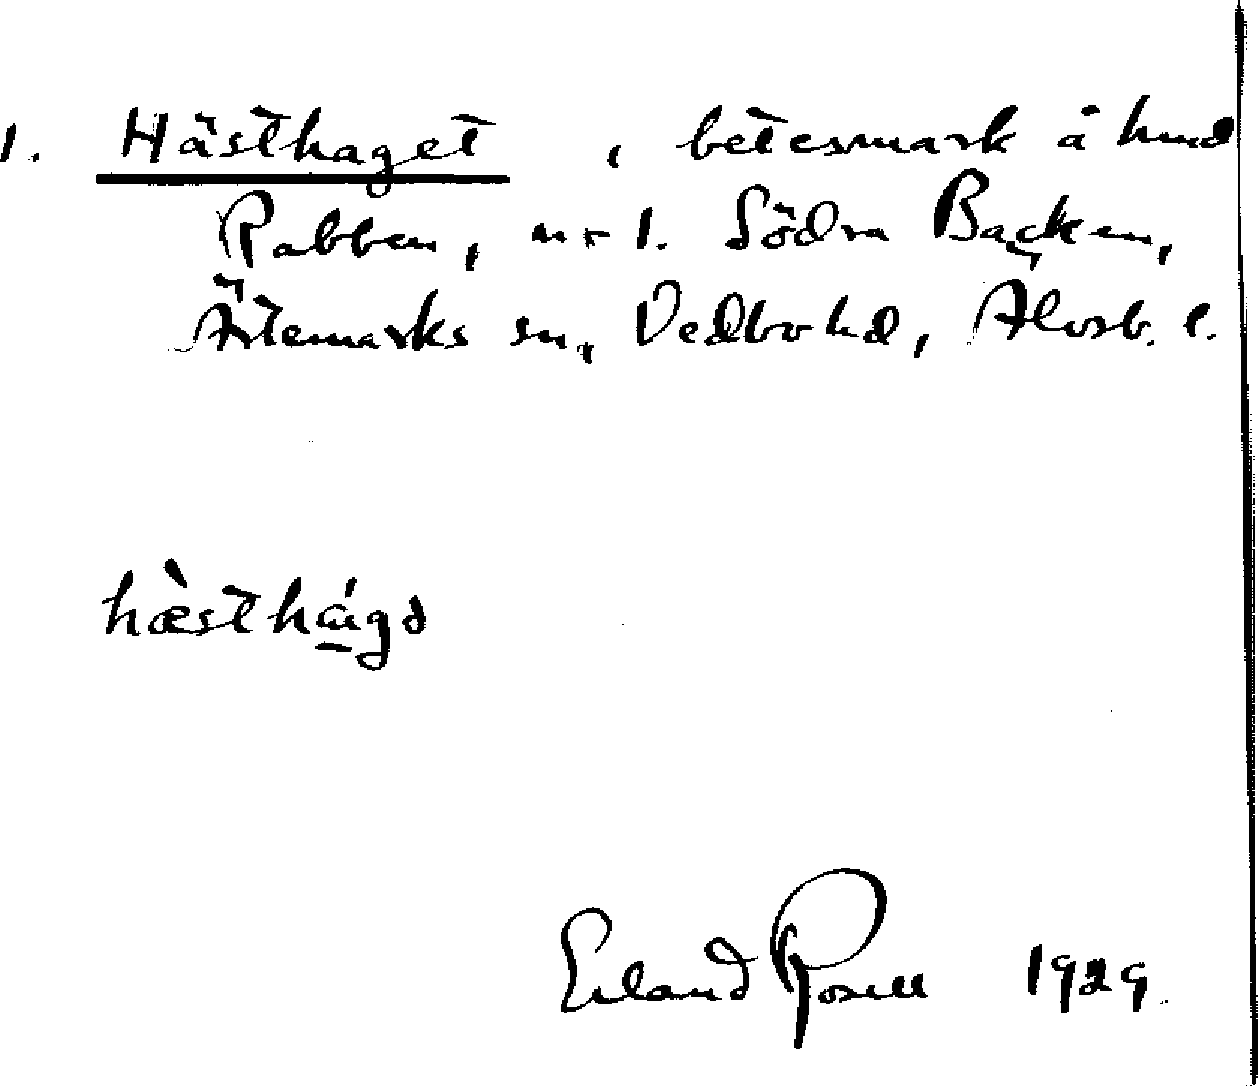 1. Hästhaget , betesmark å hmd
Rabben, nr 1. Södra Backen,
Ärtemarks sn, Vedbo hd, Älvsb. l.
hæ̀sthág̱ə
Erland Rosell 1929.